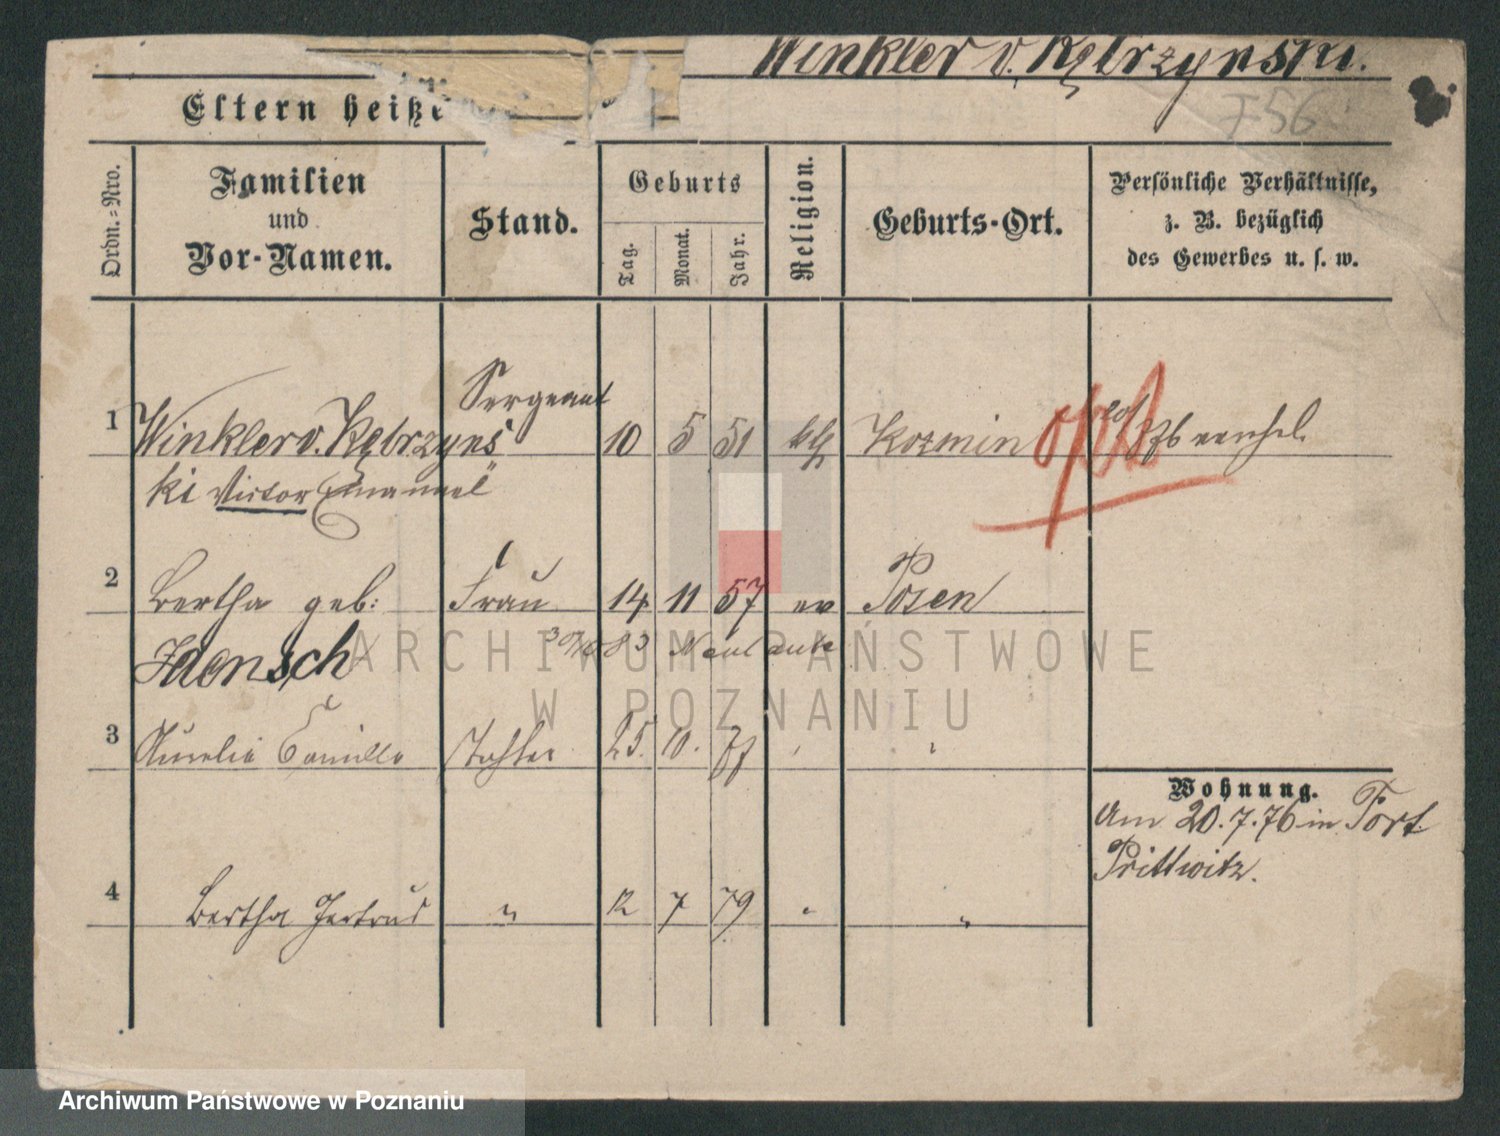 Winkler v. Kętrzynski.
756
Eltern heiße
Ordn.=Nro.
Familien
und
Vor-Namen.
Stand.
Geburts
Tag.
Monat.
Jahr.
Religion.
Geburts-Ort.
Persönliche Verhältnisse,
z. B. bezüglich
des Gewerbes u. s. w.
Sergeant
1 Winkler v. Kętrzyns 10 5 51 kth Kozmin
ki Victor Emanuel
2 Bertha geb: Frau 14 11 57 ev Posen
Jaensch 83
3 Aurelie Camilla Tochter 25. 10. 77 " "
Wohnung.
Am 20.7.76 in Fort
Prittwitz.
4 Bertha Gertrud " 12 7 79 " "
ARCHIWUM PAŃSTWOWE
W POZNANIU
Archiwum Państwowe w Poznaniu